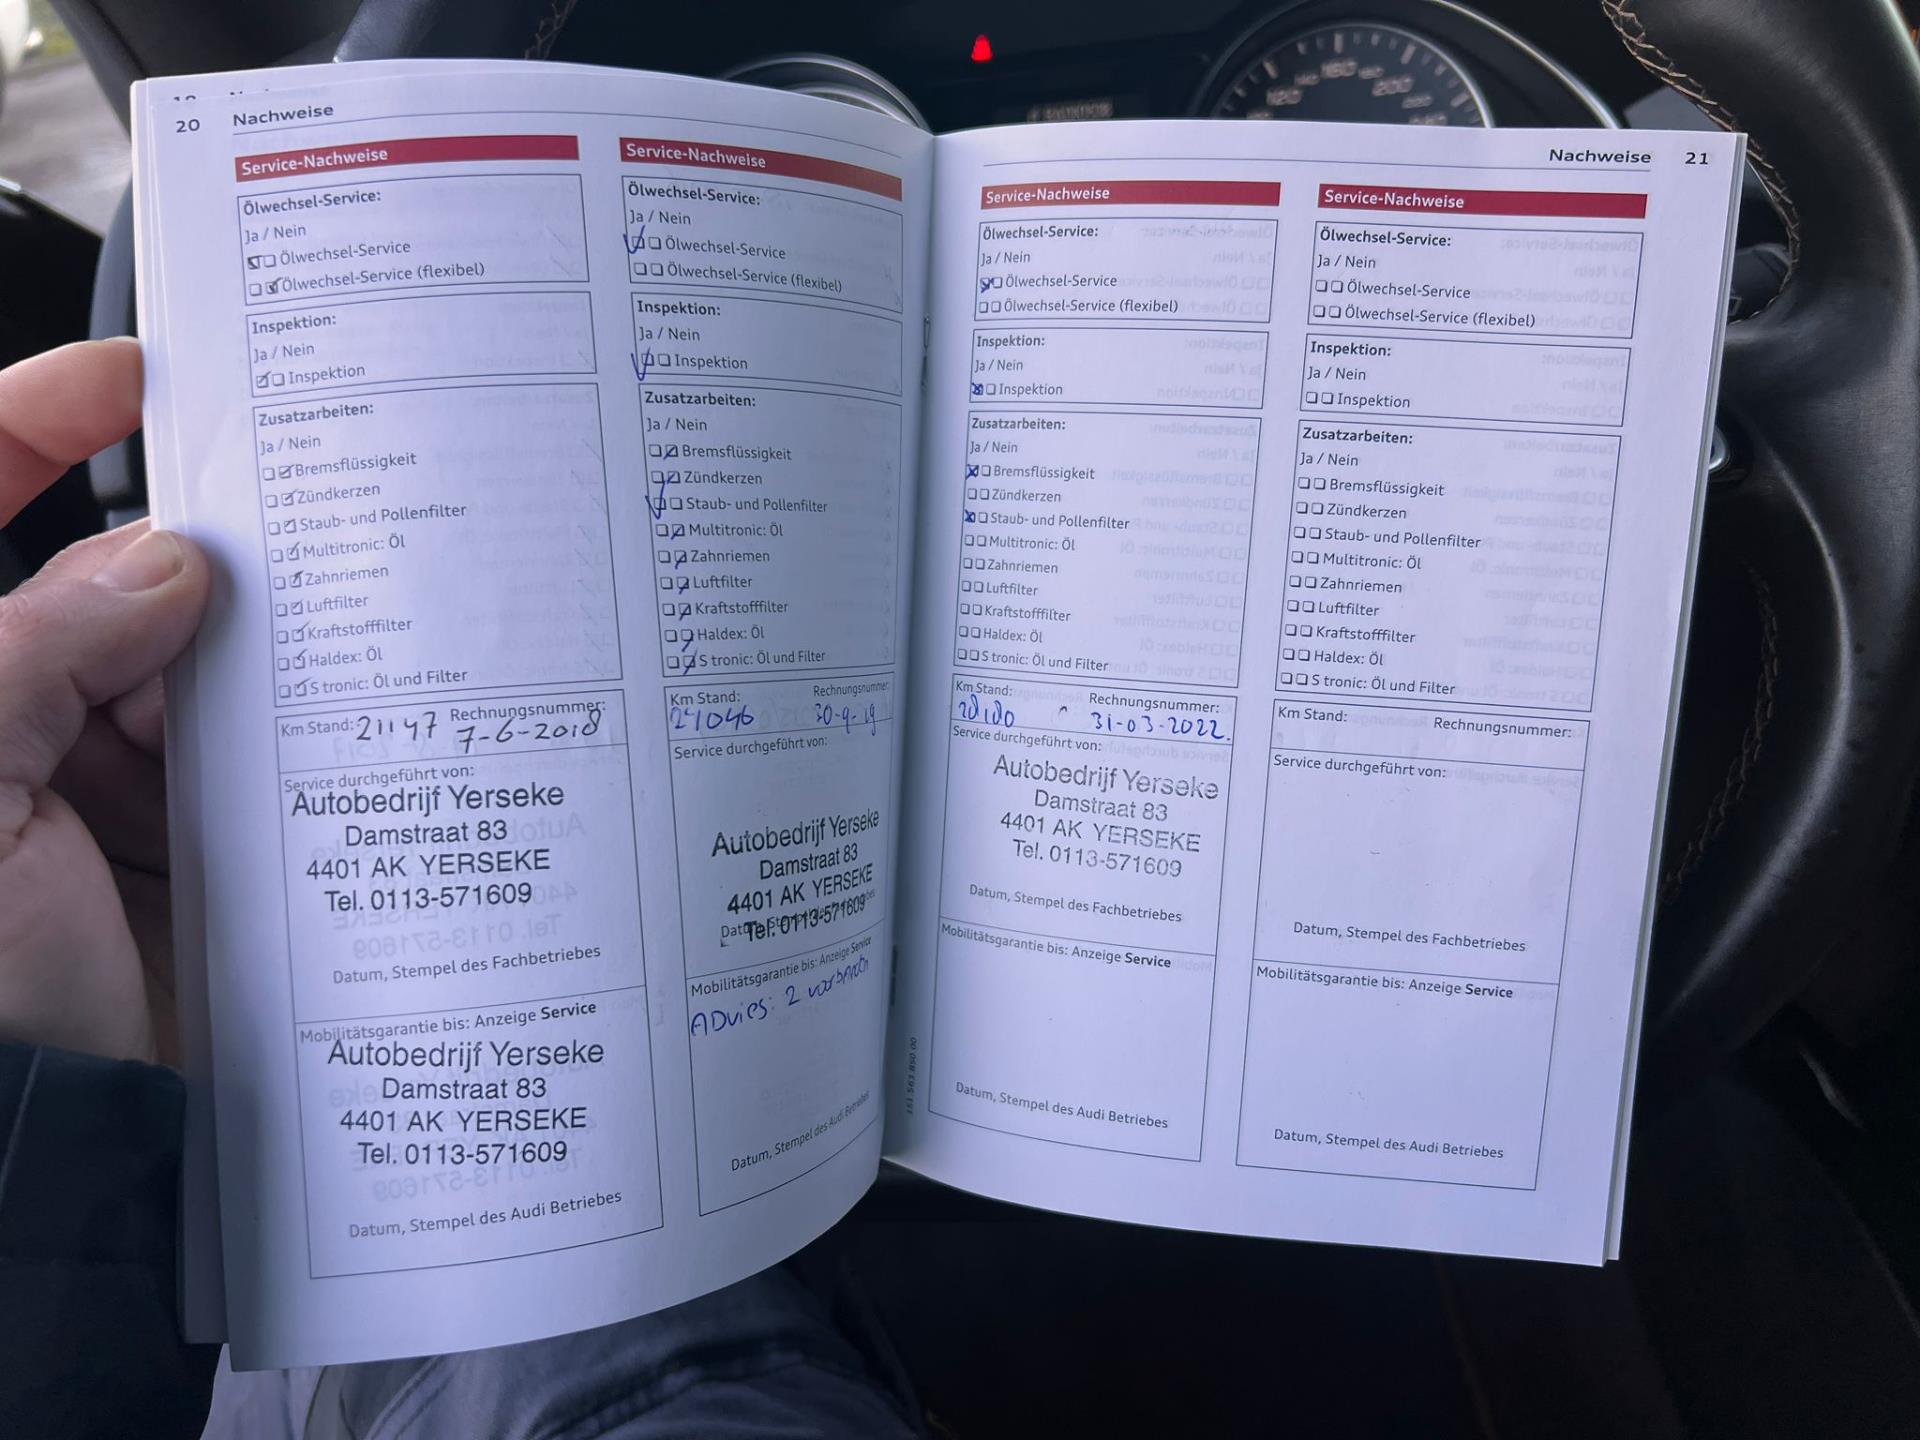 20 Nachweise
Service-Nachweise
Ölwechsel-Service:
Ja / Nein
Ölwechsel-Service
Ölwechsel-Service (flexibel)
Inspektion:
Ja / Nein
Inspektion
Zusatzarbeiten:
Ja / Nein
Bremsflüssigkeit
Zündkerzen
Staub- und Pollenfilter
Multitronic: Öl
Zahnriemen
Luftfilter
Kraftstofffilter
Haldex: Öl
S tronic: Öl und Filter
Km Stand: 21147 Rechnungsnummer:
7-6-2018
Service durchgeführt von:
Autobedrijf Yerseke
Damstraat 83
4401 AK YERSEKE
Tel. 0113-571609
Datum, Stempel des Fachbetriebes
Mobilitätsgarantie bis: Anzeige Service
Autobedrijf Yerseke
Damstraat 83
4401 AK YERSEKE
Tel. 0113-571609
Datum, Stempel des Audi Betriebes
Service-Nachweise
Ölwechsel-Service:
Ja / Nein
Ölwechsel-Service
Ölwechsel-Service (flexibel)
Inspektion:
Ja / Nein
Inspektion
Zusatzarbeiten:
Ja / Nein
Bremsflüssigkeit
Zündkerzen
Staub- und Pollenfilter
Multitronic: Öl
Zahnriemen
Luftfilter
Kraftstofffilter
Haldex: Öl
S tronic: Öl und Filter
Km Stand: Rechnungsnummer:
30-9-19
Service durchgeführt von:
Autobedrijf Yerseke
Damstraat 83
4401 AK YERSEKE
Tel. 0113-571609
Mobilitätsgarantie bis: Anzeige Service
ADvies: 2
Datum, Stempel des Audi Betriebes
Nachweise 21
Service-Nachweise
Ölwechsel-Service:
Ja / Nein
Ölwechsel-Service
Ölwechsel-Service (flexibel)
Inspektion:
Ja / Nein
Inspektion
Zusatzarbeiten:
Ja / Nein
Bremsflüssigkeit
Zündkerzen
Staub- und Pollenfilter
Multitronic: Öl
Zahnriemen
Luftfilter
Kraftstofffilter
Haldex: Öl
S tronic: Öl und Filter
Km Stand: Rechnungsnummer:
31-03-2022.
Service durchgeführt von:
Autobedrijf Yerseke
Damstraat 83
4401 AK YERSEKE
Tel. 0113-571609
Datum, Stempel des Fachbetriebes
Mobilitätsgarantie bis: Anzeige Service
Datum, Stempel des Audi Betriebes
Service-Nachweise
Ölwechsel-Service:
Ja / Nein
Ölwechsel-Service
Ölwechsel-Service (flexibel)
Inspektion:
Ja / Nein
Inspektion
Zusatzarbeiten:
Ja / Nein
Bremsflüssigkeit
Zündkerzen
Staub- und Pollenfilter
Multitronic: Öl
Zahnriemen
Luftfilter
Kraftstofffilter
Haldex: Öl
S tronic: Öl und Filter
Km Stand: Rechnungsnummer:
Service durchgeführt von:
Datum, Stempel des Fachbetriebes
Mobilitätsgarantie bis: Anzeige Service
Datum, Stempel des Audi Betriebes